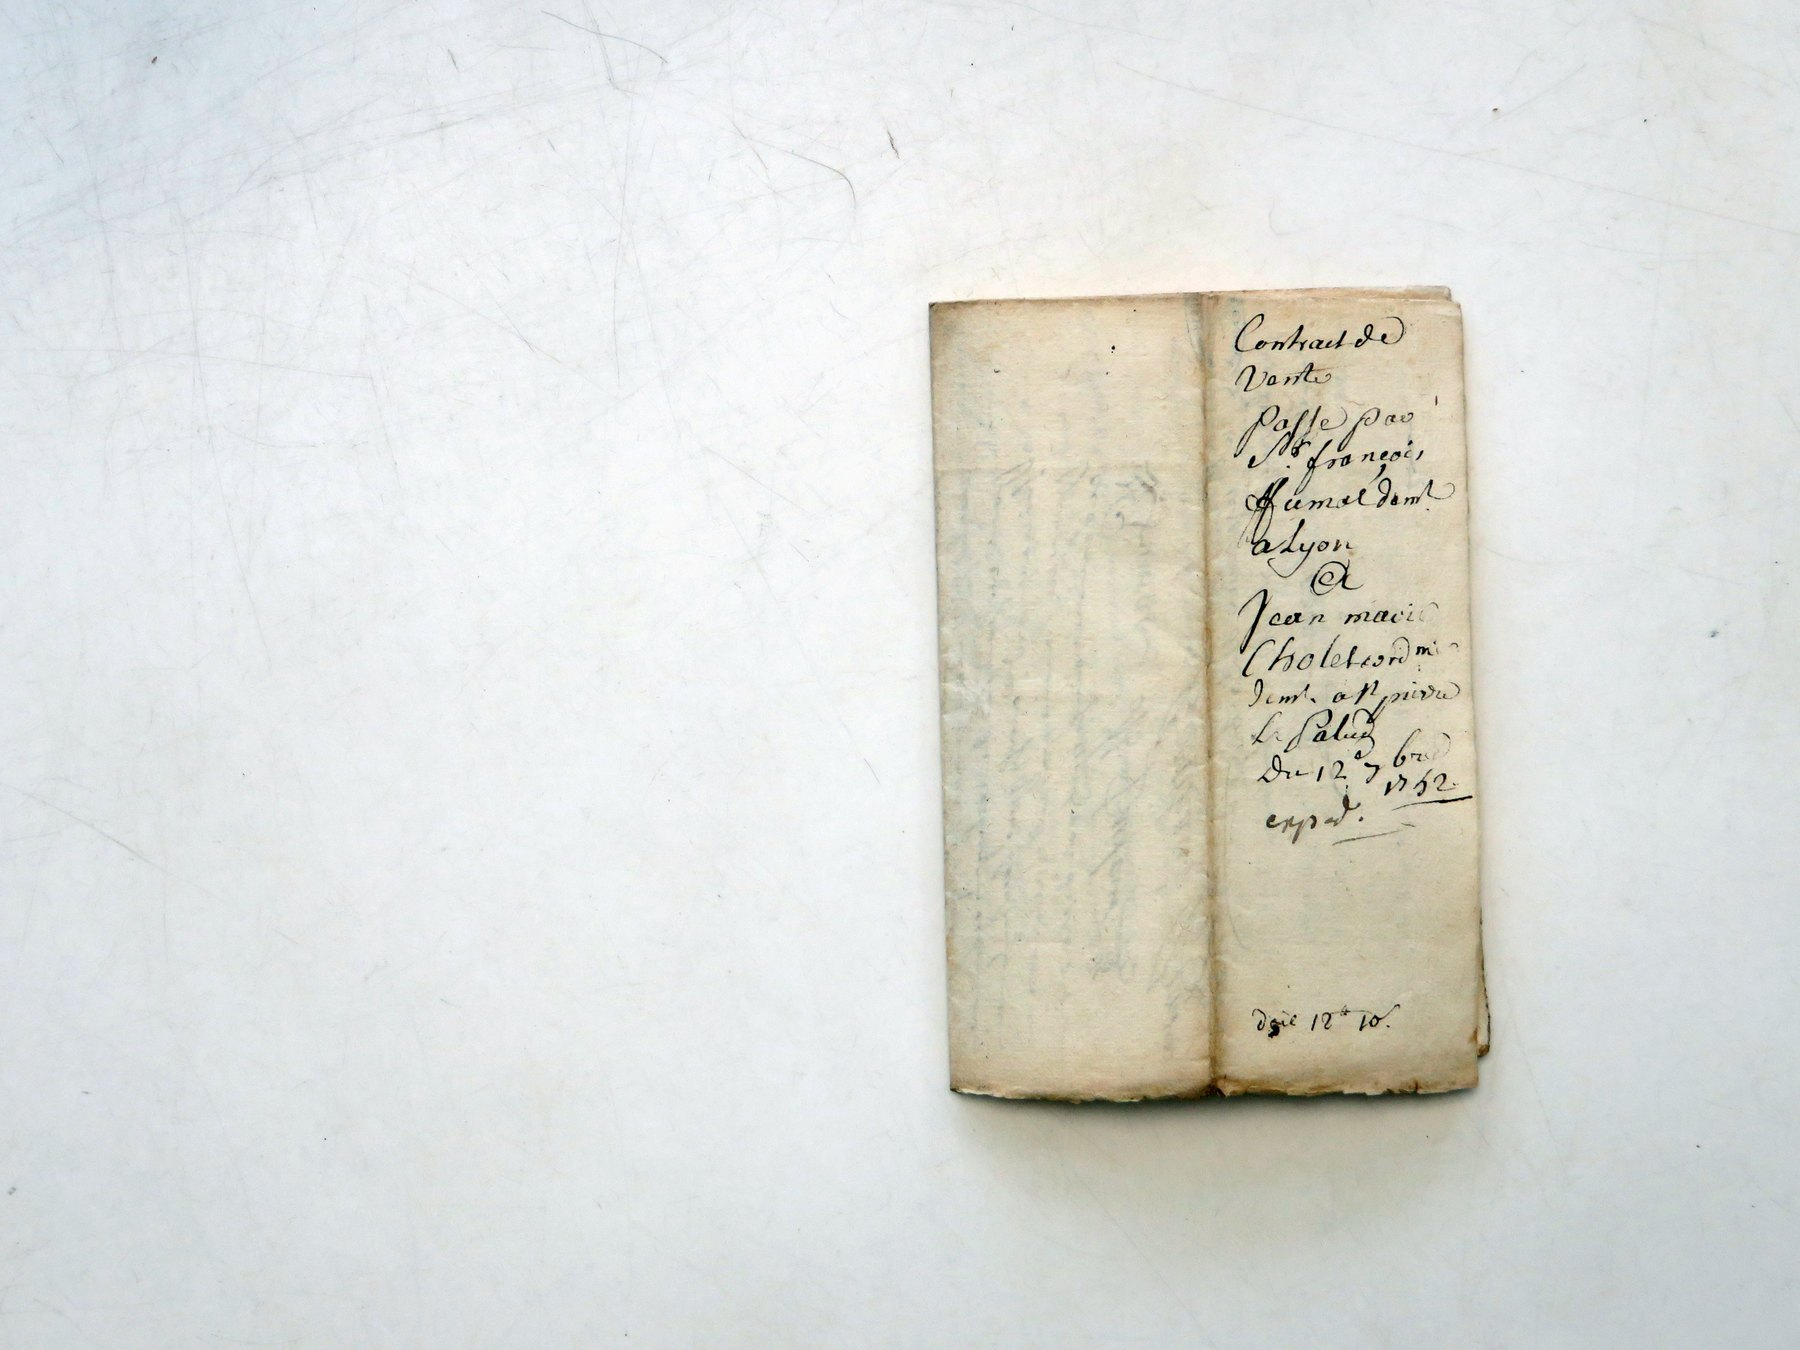 Contract de
Vente
passe par
Sr. françois
ffumat demt.
a Lyon
Et
Jean marie
Cholet cord
demt. a St pierre
La Palud
Du 12e 7bre
1752
exped.
doit 12# 10s.